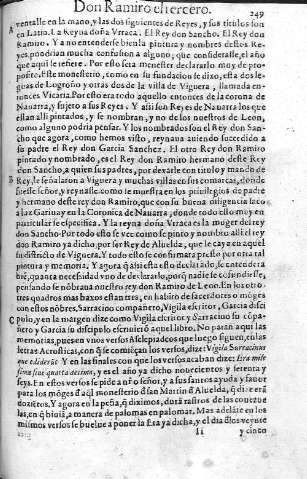 Don Ramiro el tercero. 249
A ventalle en la mano, y las dos siguientes de Reyes, y sus titulos son
en Latin. La Reyna doña Vrraca. El Rey don Sancho. El Rey don
Ramiro. Y a no entenderse bien la pintura y nombres destos Re-
yes, podrian mucha confusion a alguno, que considerasse, el año
que aqui se refiere. Por esto sera menester declararlo muy de pro-
posito. Este monesterio, como en su fundacion se dixo, esta dos le-
guas de Logroño y otras dos de la villa de Viguera, llamada en-
tonces Vicaria. Por esso era todo aquello entonces de la corona de
Nauarra, y sujeto a sus Reyes. Y assi son Reyes de Nauarra los que
estan alli pintados, y se nombran, y no de los nuestros de Leon,
como alguno podria pensar. Y los nombrados son el Rey don San-
cho que agora, como hemos visto, reynaua auiendo succedido a
su padre el Rey don Garcia Sanchez. El otro Rey don Ramiro
pintado y nombrado, es el Rey don Ramiro hermano deste Rey
don Sancho, a quien sus padres, por dexarle con titulo y mando de
B Rey, le señalaron a Viguera y muchas villas en sus comarcas, donde
fuesse señor, y reynasse como se muestra en los priuilegios de padre
y hermano deste rey don Ramiro, que con su buena diligencia saco
a luz Garibay en la Coronica de Nauarra, donde todo esto muy en
particular se especifica. Y la reyna doña Vrraca es la muger del rey
don Sancho. Por todo esto se vee como se pinto y nombro alli el rey
don Ramiro ya dicho, por ser Rey de Aluelda, que le caya en aquel
su districto de Viguera. Y todo esto se confirmara presto por otra tal
pintura y memoria. Y agora q̃ assi esta esto declarado, se entendera
biẽ, quanta necesidad vuo de declararlo, porq̃ nadie se cõfundiesse,
pensando se nõbraua nuestro rey don Ramiro de Leon. En los otros
tres quadros mas baxos estan tres, en habito de sacerdotes o mõges
con estos nõbres, Sarracino compañero, Vigila escritor, Garcia disci
C pulo, y en la margen dize como Vigila escriuio y Sarracino su cõpa-
ñero y Garcia su discipulo escriuierõ aquel libro. No paran aqui las
memorias, pues en vnos versos Asclepiadeos que luego siguen, en las
letras Acrosticas, con q̃ se comiẽçan los versos, dize: Vigila Sarracinus
que ediderũt Y en las finales con que los versos acaban dize: Era mille
sima siue quarta decima, y es el año ya dicho nouecientos y setenta y
seys. En estos versos se pide a nr̃o señor, y a sus santos ayuda y fauor
para los mõges d̃ aq̃l monesterio d̃ san Martin d̃ Aluelda, q̃ dize erã
dozietos. Y agora en la peña, q̃ diximos, dura rastros de las cueuas
las, en q̃ biuiã, a manera de palomas en palomar. Mas adelãte en los
mismos versos se buelue a poner la Era ya dicha, y el dia d̃los veynte
Ii y cinco